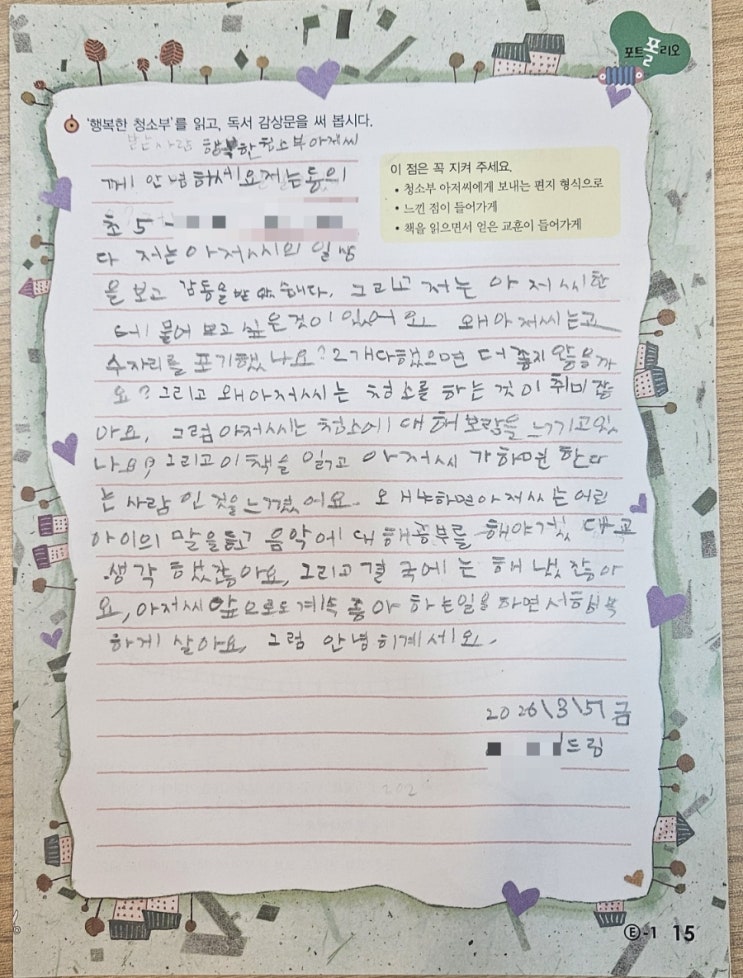 포트폴리오
'행복한 청소부'를 읽고, 독서 감상문을 써 봅시다.
행복한청소부아저씨
께 안녕하세요저는동의
초 5 -
다 저는아저씨의 일상
을 보고 감동을받았습니다. 그리고 저는 아저씨한
테 물어보고 싶은것이있어요 왜아저씨는교
수자리를 포기했나요? 2개다했으면 더좋지않을까
요? 그리고 왜아저씨는 청소를 하는것이 취미같
아요, 그럼아저씨는 청소에대해보람을느끼고있
나요? 그리고이책을 읽고 아저씨가하면 한다
는사람 인것을느꼈어요. 왜냐하면아저씨는어린
아이의 말을듣고 음악에대해공부를해야겠다고
생각 했잖아요, 그리고결국에는 해냈잖아
요, 아저씨앞으로도계속좋아하는일을하면서행복
하게 살아요, 그럼 안녕히계세요.
이 점은 꼭 지켜 주세요.
• 청소부 아저씨에게 보내는 편지 형식으로
• 느낀 점이 들어가게
• 책을 읽으면서 얻은 교훈이 들어가게
2026\3\5\금
드림
202
Ⓔ-1 15